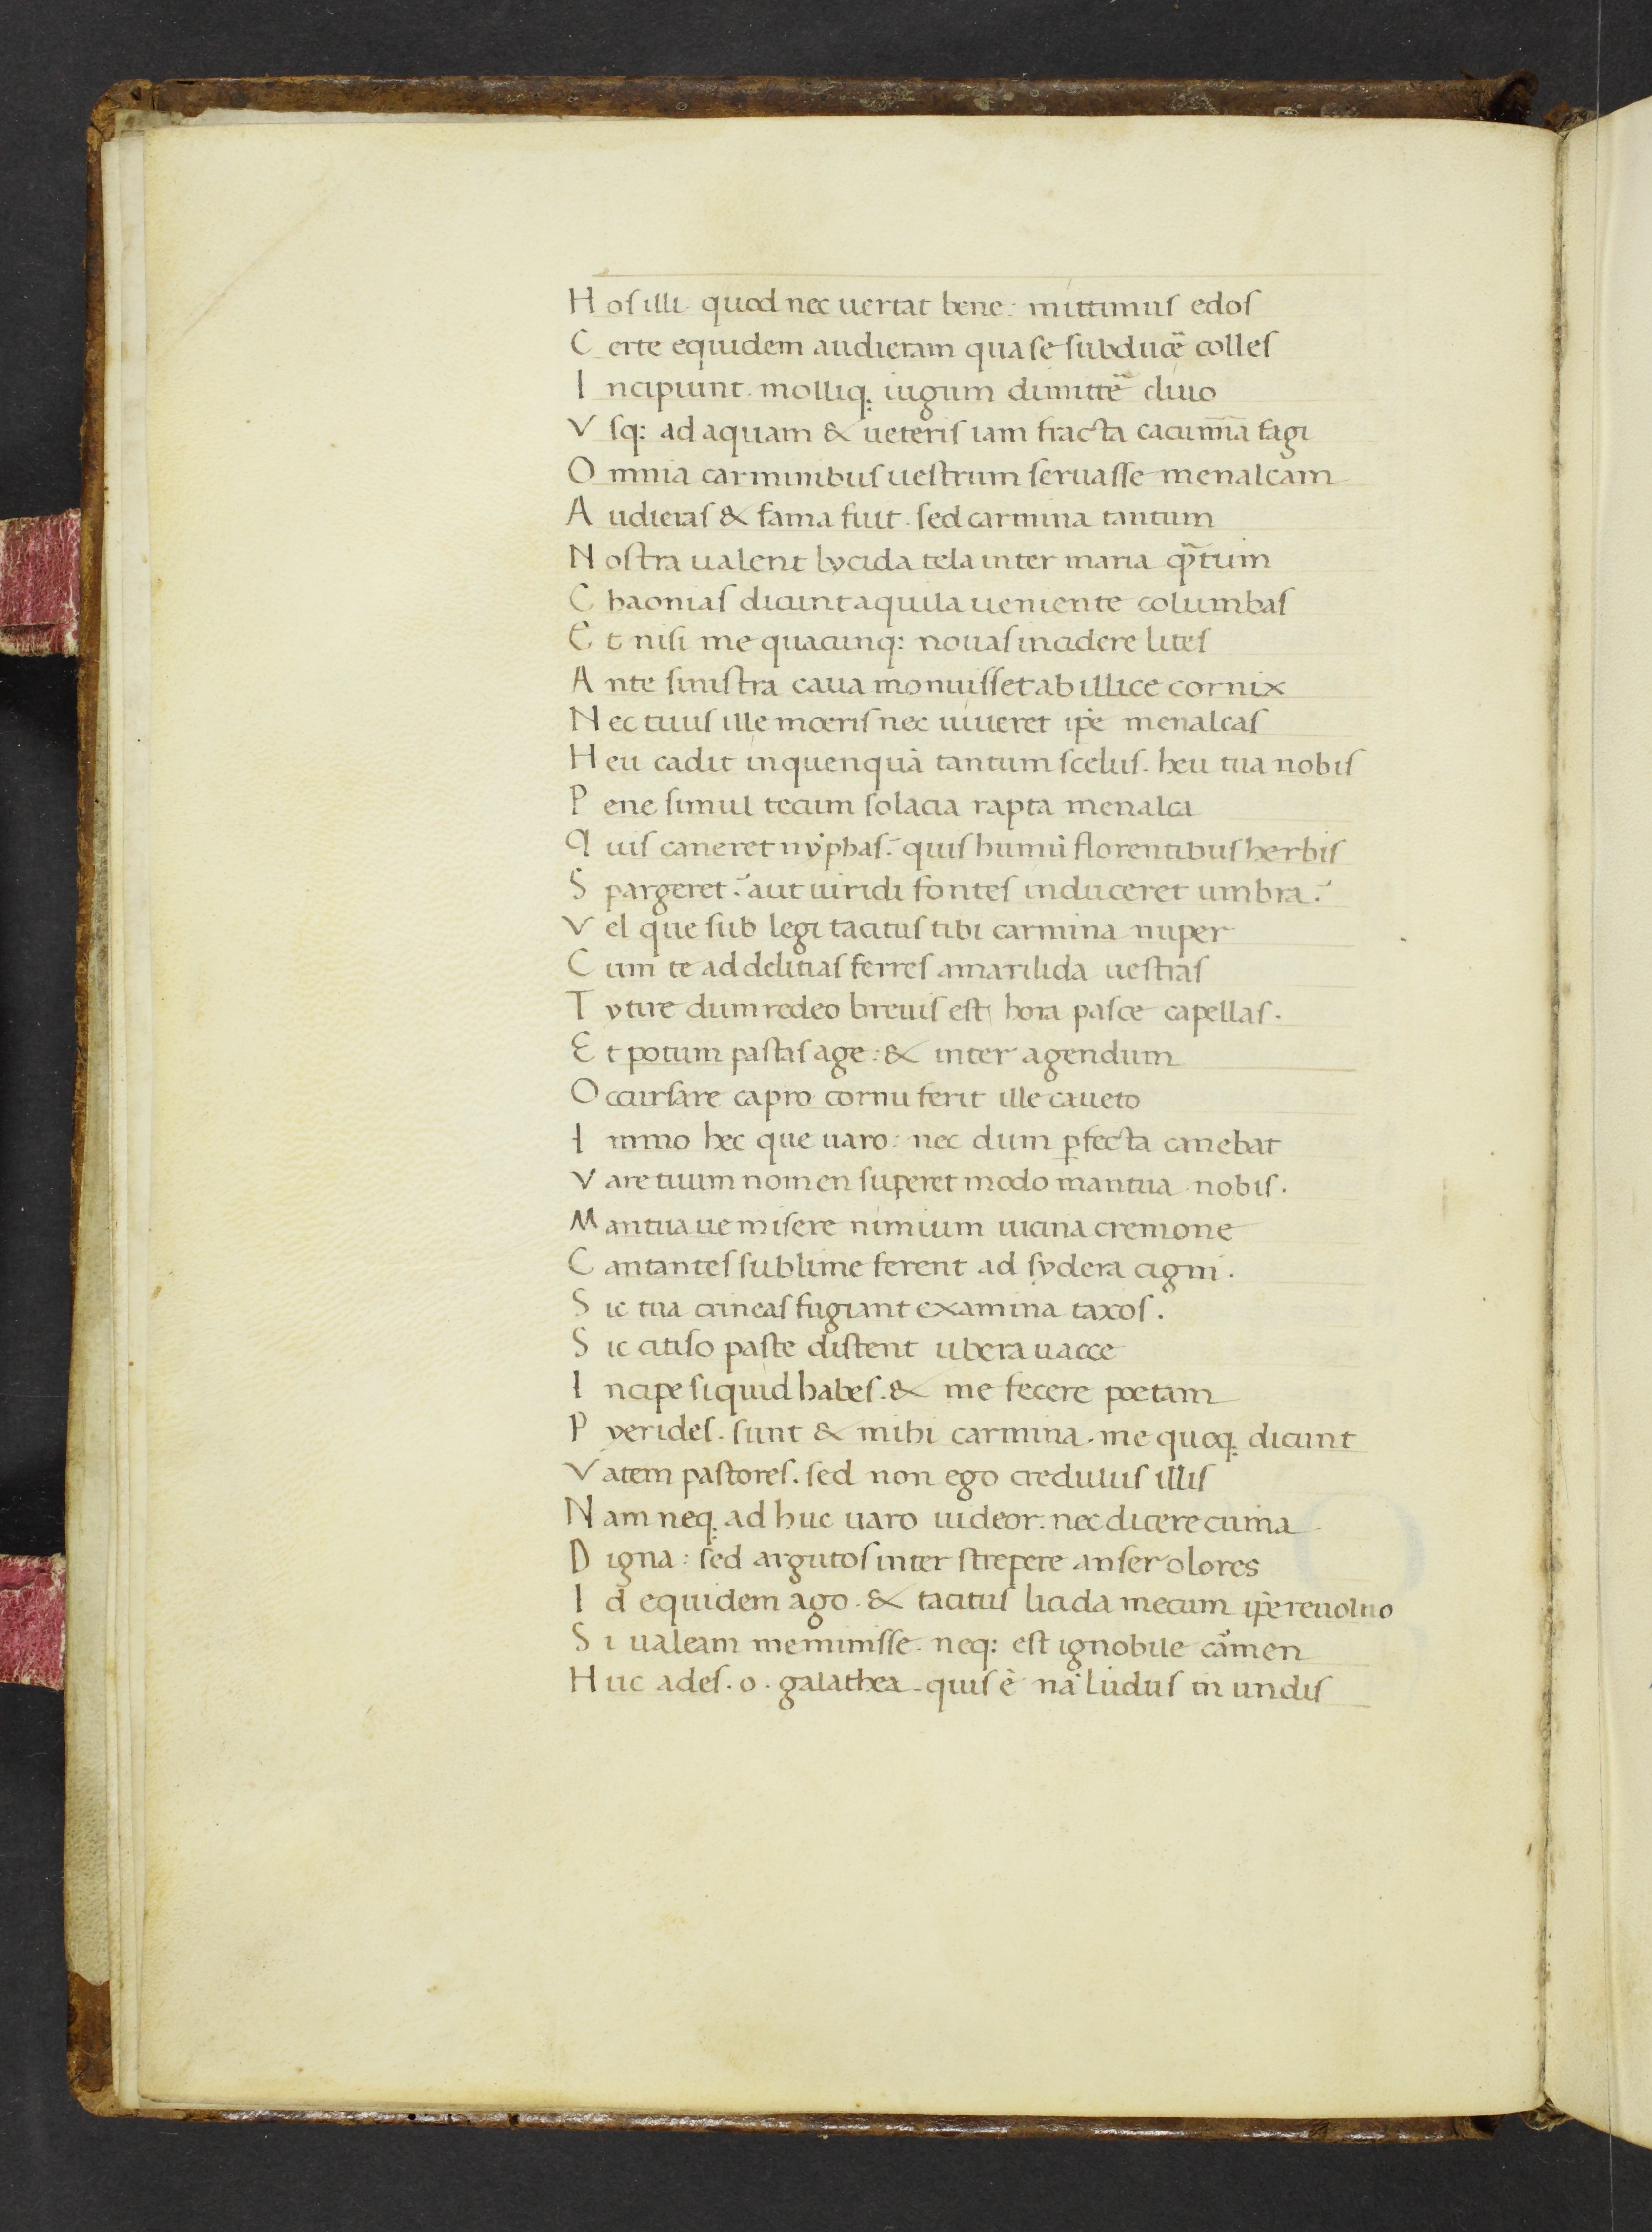 H os illi. quod nec uertat bene: mittimus edos
C erte equidem audieram qua se subducē colles
I ncipiunt. molliq; iugum dimittē cliuo
V sq: ad aquam & ueteris iam fracta cacumīa fagi
O mnia carminibus uestrum seruasse menalcam
A udieras & fama fuit. sed carmina tantum
N ostra ualent lycida tela inter maria qᷓtum
C haonias dicunt aquila ueniente columbas
E t nisi me quacunq: nouas incidere lites
A nte sinistra caua monuisset ab illice cornix
N ec tuus ille moeris nec uiueret ip̄e menalcas
H eu cadit in quenquā tantum scelus. heu tua nobis
P ene simul tecum solacia rapta menalca
Q uis caneret nȳphas? quis humū florentibus herbis
S pargeret? aut uiridi fontes induceret umbra?
V el que sub legi tacitus tibi carmina nuper
C um te ad delitias ferres amarilida uestras
T ytire dum redeo breuis est hora pasce capellas.
E t potum pastas age: & inter agendum
O ccursare capro cornu ferit ille caueto
I mmo hec que uaro: nec dum ꝑfecta canebat
V are tuum nomen superet modo mantua nobis.
M antua ue misere nimium uicina cremone
C antantes sublime ferent ad sydera cigni.
S ic tua crineas fugiant examina taxos.
S ic citiso paste distent ubera uacce
I ncipe siquid habes. & me fecere poetam
P yerides. sunt & mihi carmina. me quoq; dicunt
V atem pastores. sed non ego credulus illis
N am neq; ad huc uaro uideor. nec dicere cinna
D igna: sed argutos inter strepere anser olores
I d equidem ago. & tacitus licida mecum ip̄e reuoluo
S i ualeam meminisse. neq: est ignobile cāmen
H uc ades. o. galathea. quis ē nā ludus in undis